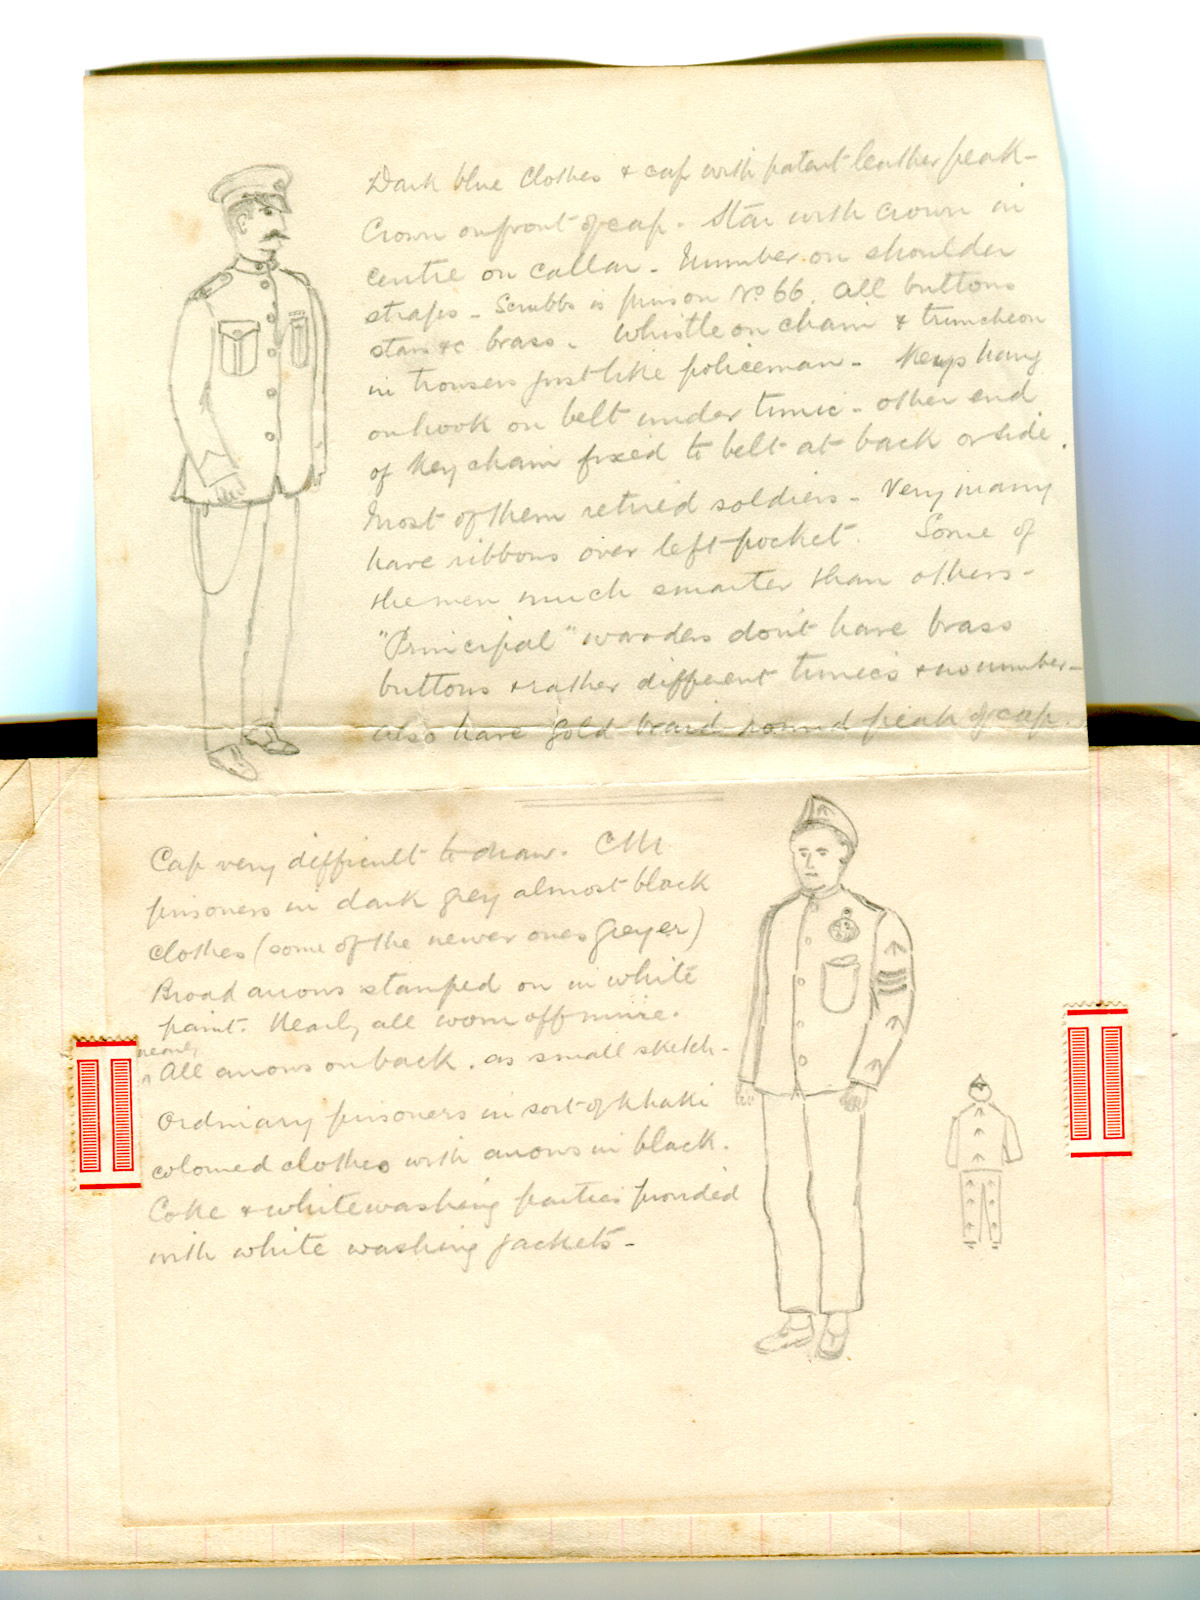 Dark blue clothes & cap with patent leather peak -
Crown on front of cap. Star with crown in
centre on collar - Number on shoulder
straps - Scrubbs is prison No 66. All buttons
stars &c brass - Whistle on chain & truncheon
in trousers just like policeman - Keys hang
on hook on belt under tunic - other end
of key chain fixed to belt at back or side.
Most of them retired soldiers - Very many
have ribbons over left pocket. Some of
the men much smarter than others -
"Principal" warders don't have brass
buttons & rather different tunics & no number -
also have gold braid round peak of cap.
Cap very difficult to draw. CM
prisoners in dark grey almost black
clothes (some of the newer ones greyer)
Broad arrows stamped on in white
paint. Nearly all worn off mine.
nearly
^ All arrows on back. as small sketch -
Ordinary prisoners in sort of khaki
coloured clothes with arrows in black.
Coke & whitewashing parties provided
with white washing jackets -